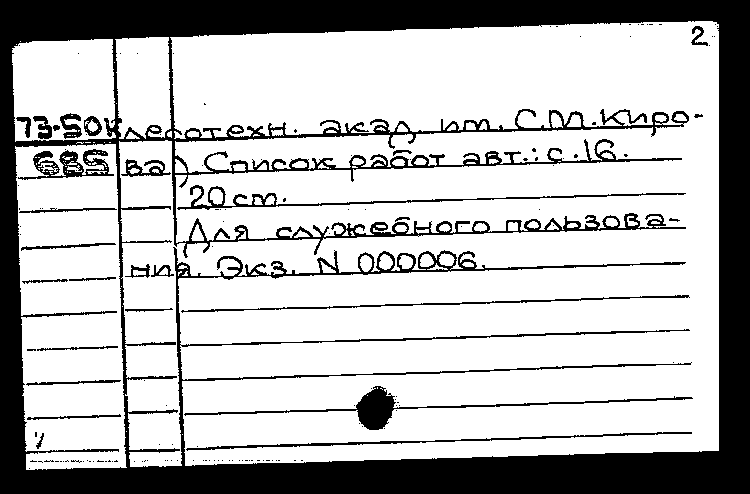 2
73-50к лесотехн. акад. им. С.М.Киро-
685 ва). Список работ авт.: с.16.
20 cm.
Для служебного пользова-
ния. Экз. N 000006.